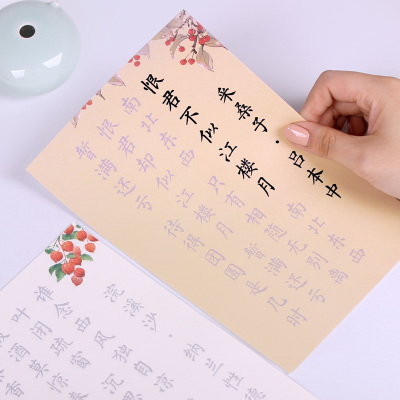 采桑子·吕本中
恨君不似江楼月南北东西
南北东西只有相随无别离
恨君却似江楼月暂满还亏
暂满还亏待得团圆是几时
浣溪沙·纳兰性德
谁念西风独自凉
叶闭疏窗沉思
酒莫惊春
香